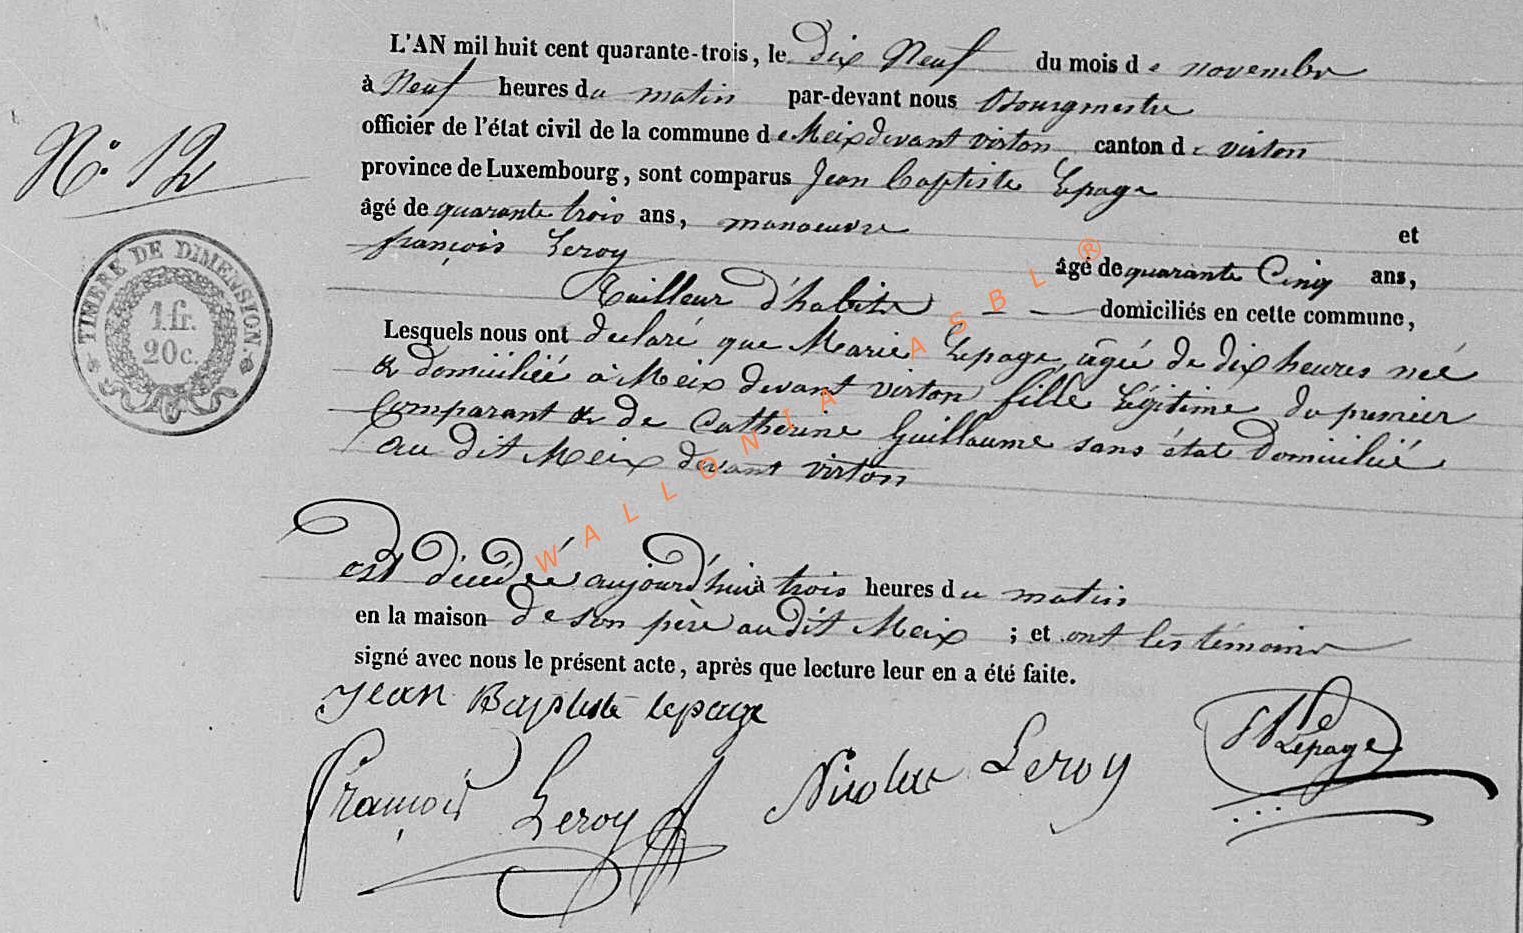 L'AN mil huit cent quarante-trois, le dix Neuf du mois de novembre
à Neuf heures du matin par-devant nous Bourgmestre
officier de l'état civil de la commune de Meix devant virton canton de virton
N.° 12
province de Luxembourg, sont comparus Jean Baptiste Lepage
âgé de quarante trois ans, manoeuvre et
françois Leroy âgé de quarante Cinq ans,
Tailleur d'habits domiciliés en cette commune,
TIMBRE DE DIMENSION
1 fr.
20 c.
Lesquels nous ont declaré que Marie Lepage, âgée de dix heures née
& domiciliée à Meix devant virton fille Légitime du premier
Comparant & de Catherine Guillaume sans état Domiciliée
au dit Meix devant virton
WALLONIA ASBL ®
est décédée aujourd'hui à trois heures du matin
en la maison de son père au dit Meix ; et ont les témoins
signé avec nous le présent acte, après que lecture leur en a été faite.
Jean Baptiste lepage
François Leroy Nicolas Leroy Lepage